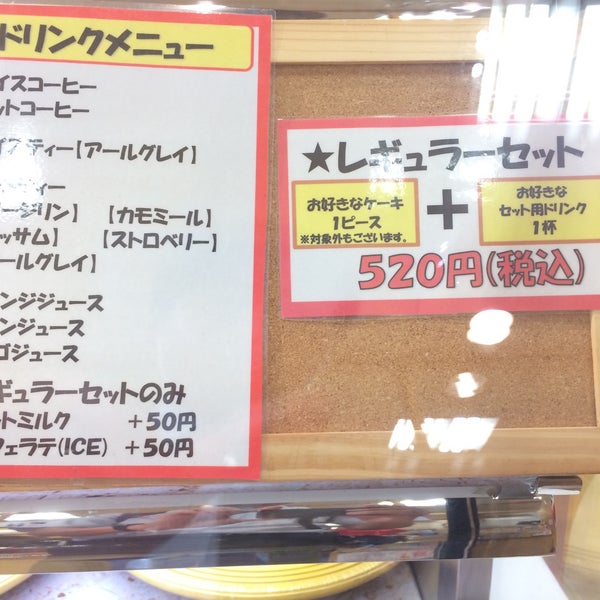 ドリンクメニュー
イスコーヒー
ットコーヒー
イスティー【アールグレイ】
ティー
ージリン】【カモミール】
ッサム】【ストロベリー】
ールグレイ】
ンジジュース
ンジュース
ゴジュース
ギュラーセットのみ
ットミルク +50円
フェラテ(ICE) +50円
★レギュラーセット
お好きなケーキ
1ピース
※対象外もございます。
+
お好きな
セット用ドリンク
1杯
520円(税込)